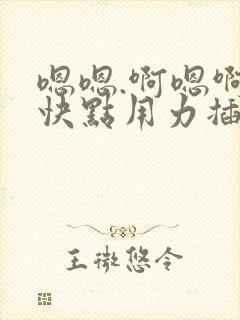 嗯嗯.啊嗯啊
快點用力插
王微悠令